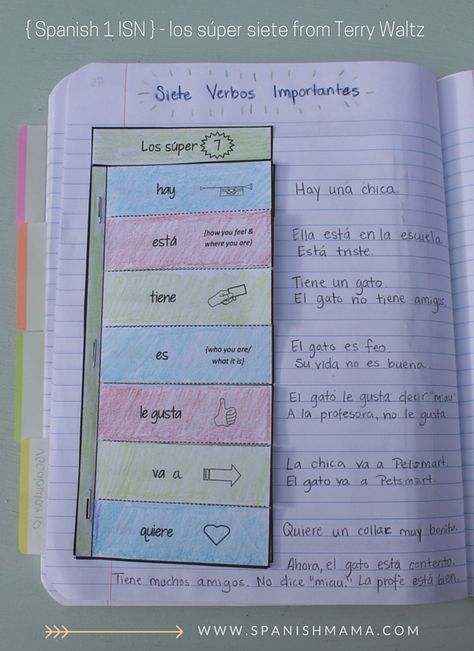 { Spanish 1 ISN } - los súper siete from Terry Waltz
Siete Verbos Importantes
Los súper 7
hay
Hay una chica.
está
{how you feel &
where you are}
Ella está en la escuela.
Está triste.
tiene
Tiene un gato.
El gato no tiene amigos.
es
{who you are/
what it is}
El gato es feo.
Su vida no es buena.
le gusta
El gato le gusta decir "miau"
A la profesora, no le gusta
va a
La chica va a Petsmart.
El gato va a Petsmart.
quiere
Quiere un collar muy bonito.
Ahora, el gato está contento.
Tiene muchos amigos. No dice "miau." La profe está bien.
Vocabulario
WWW.SPANISHMAMA.COM